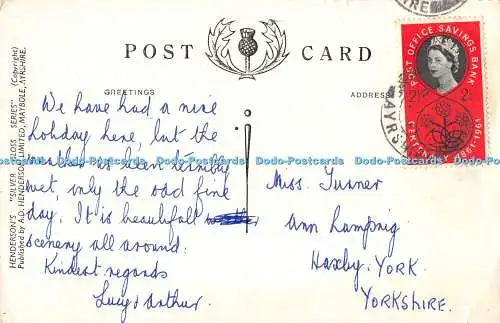 POST CARD
GREETINGS
ADDRESS
HENDERSON'S "SILVER GLOSS SERIES" (Copyright)
Published by A.D. HENDERSON LIMITED, MAYBOLE, AYRSHIRE.
We have had a nice
holiday here, but the
weather has been terribly
wet, only the odd fine
day. It is beautifull
scenery all around.
Kindest regards
Lucy & Arthur.
Miss. Turner
Ann Lamprig
Haxby. YORK
YORKSHIRE.
POST OFFICE SAVINGS BANK
CENTENARY 1861-1961
AYRSHIRE
Dodo-Postcards Dodo-Postcards Dodo-Postcards Dodo-Postcards Dodo-Postcards Dodo-Postcards